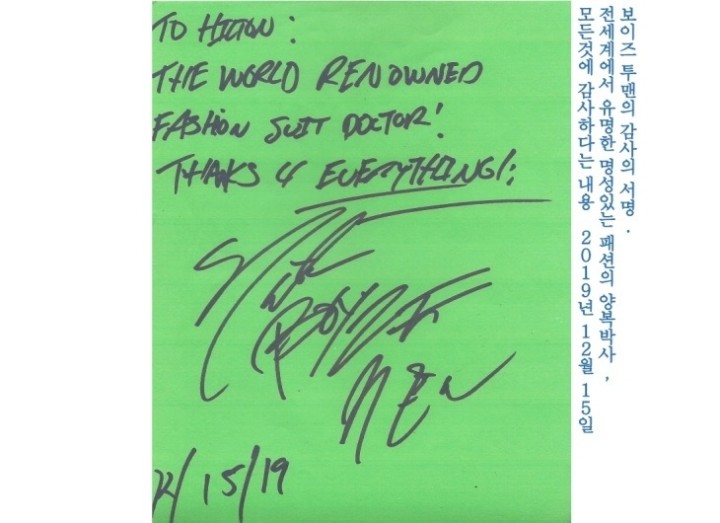 TO HILTON :
THE WORLD RENOWNED
FASHION SUIT DOCTOR!
THANKS 4 EVERYTHING!:
BOYZ II
MEN
12/15/19
보이즈 투맨의 감사의 서명 .
전세계에서 유명한 명성있는 패션의 양복박사 ,
모든것에 감사하다는 내용 2019년 12월 15일